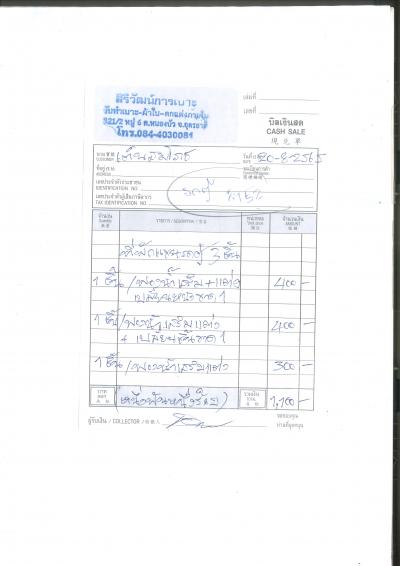 สิริวัฒน์การเบาะ
รับทำเบาะ-ผ้าใบ-ตกแต่งภายใน
321/2 หมู่ 6 ต.หนองบัว จ.อุดรธานี
โทร.084-4030081
เล่มที่
เลขที่
บิลเงินสด
CASH SALE
現 兌 單
นาม
CUSTOMER
วันที่ 20-8-2565
DATE
ที่อยู่
ADDRESS
เลขประจำตัวประชาชน
IDENTIFICATION NO.
เลขประจำตัวผู้เสียภาษีอากร
TAX IDENTIFICATION NO.
รถตู้
จำนวน
รายการ / DESCRIPTION
หน่วยละ
จำนวนเงิน
AMOUNT
รถตู้ 3 ชิ้น
1 ชิ้น / พองน้ำเสริม + แต่ง 400 -
1
1 ชิ้น / พองน้ำเสริมแต่ง 400 -
+ 1
1 ชิ้น / พองน้ำเสริมแต่ง 300 -
บาท
BAHT
(หนึ่งพันหนึ่งร้อย)
รวมเงิน
TOTAL
1,100 -
ผู้รับเงิน / COLLECTOR / 收款人
ขอขอบคุณ
ท่านที่อุดหนุน